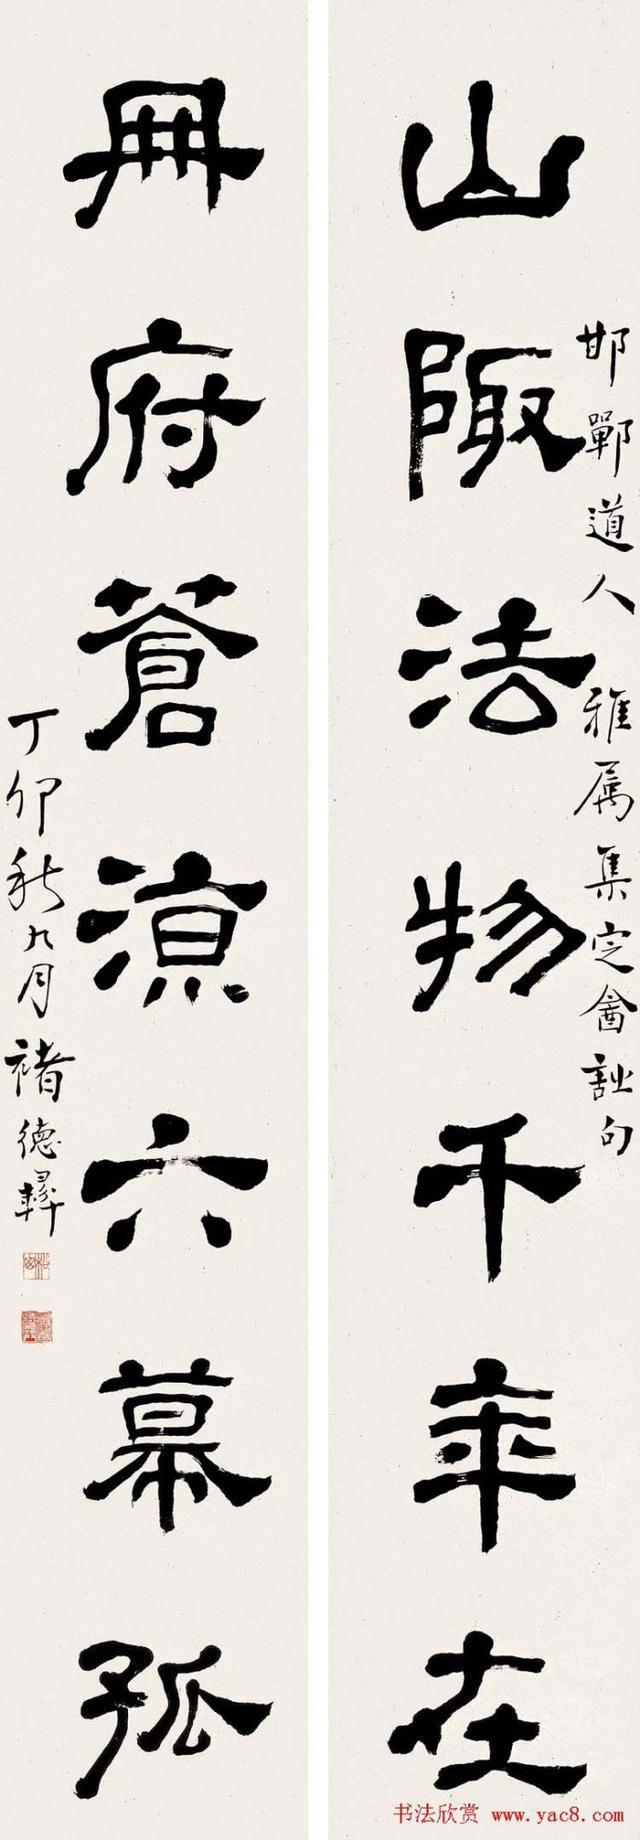 邯鄲道人 雅属集定盦詩句
山陬法物千年在
冊府蒼涼六幕孤
丁卯秋九月褚德彝
书法欣赏 www.yac8.com